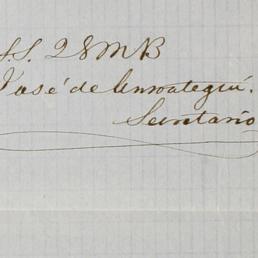 S.S. 2 S M B
José de Amoategui.
Secretario